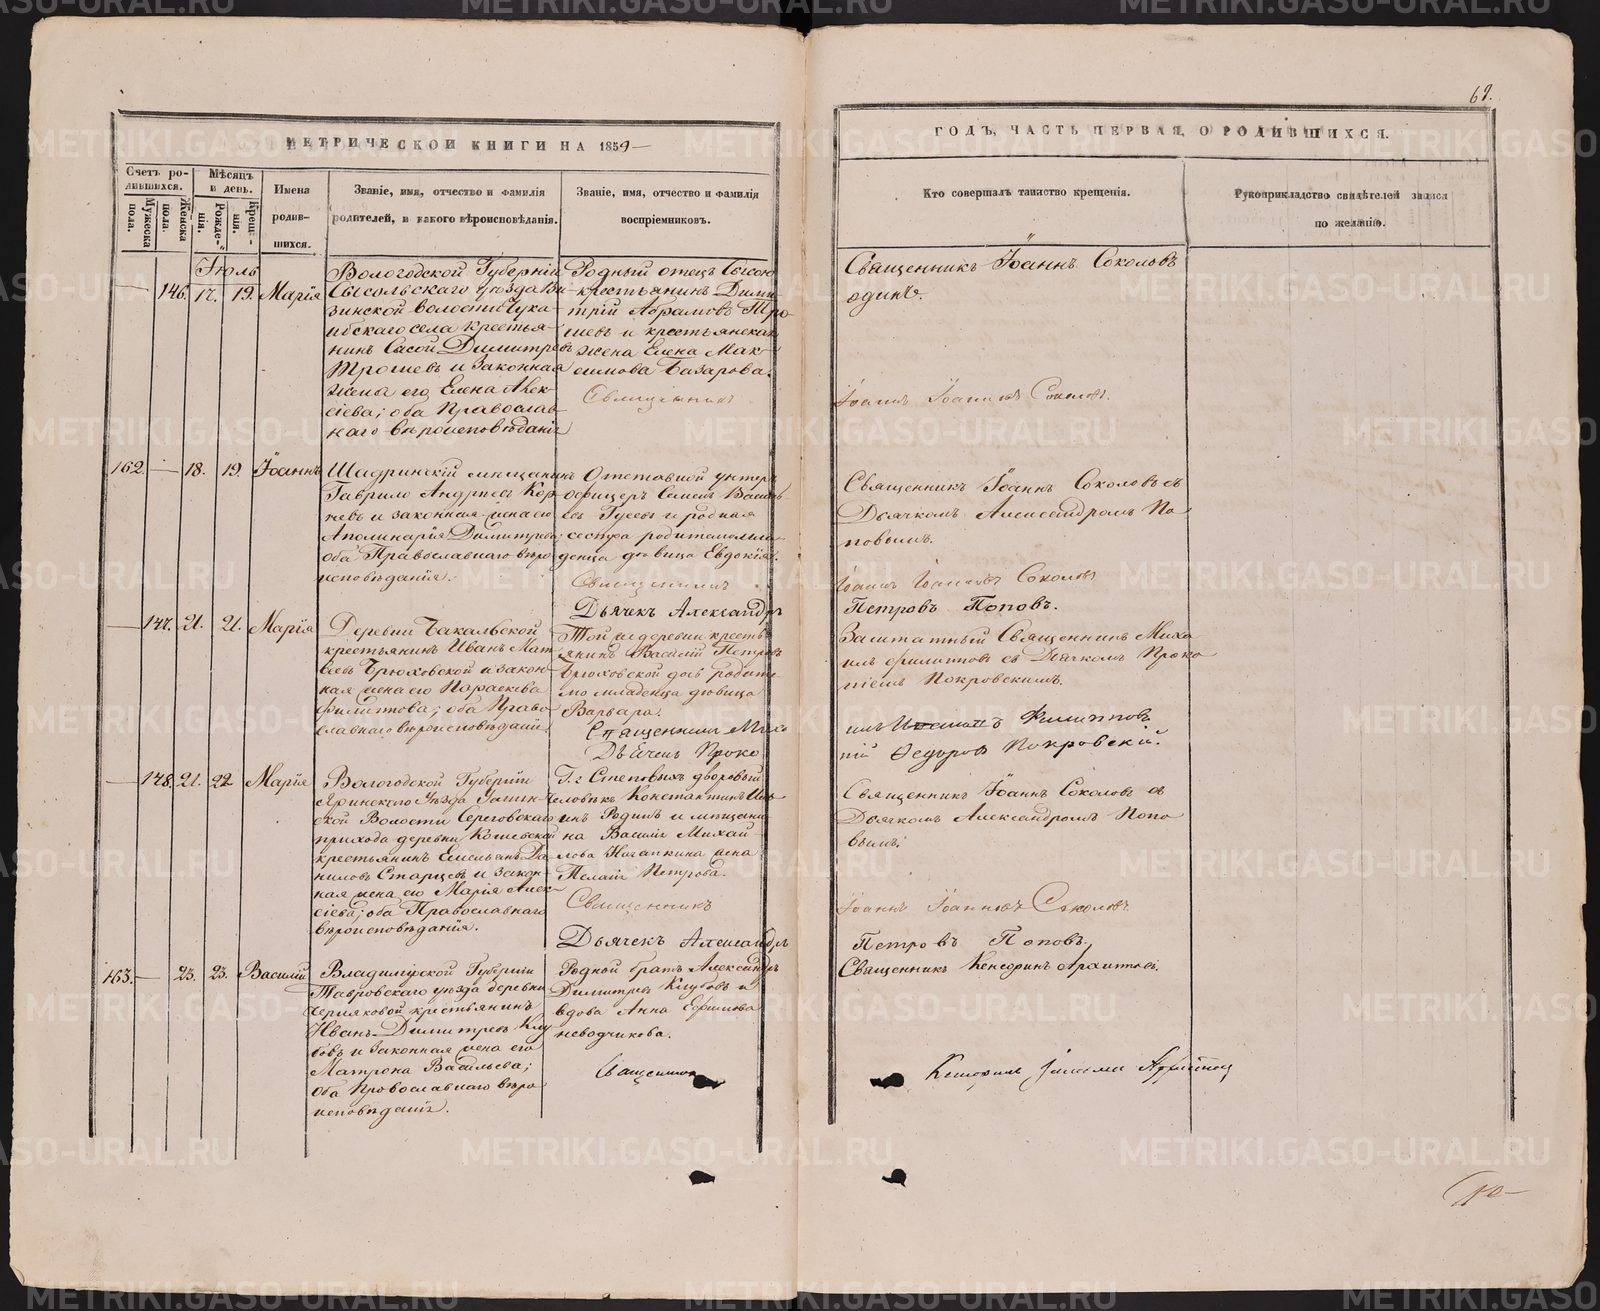 62.
МЕТРИЧЕСКОЙ КНИГИ НА 1859
ГОДЪ, ЧАСТЬ ПЕРВАЯ, О РОДИВШИХСЯ.
Счетъ родившихся.
Мужеска пола.
Женска пола.
Мѣсяцъ и день.
Рожденія.
Крещенія.
Имена родившихся.
Званіе, имя, отчество и фамилія
родителей, и какого вѣроисповѣданія.
Званіе, имя, отчество и фамилія
воспріемниковъ.
Кто совершалъ таинство крещенія.
Рукоприкладство свидѣтелей записи
по желанію.
Іюль
146. 17. 19. Марія
Вологодской Губерніи
Сысольскаго уѣзда Ви-
зинской волости
села крестья-
нинъ Сысой Димитріевъ
Трошевъ и законная
жена его Елена Алек-
сіева; оба Православ-
наго вѣроисповѣданія
Родный отецъ Сысою
крестьянинъ Дими-
трій Абрамовъ Тро-
шевъ и крестьянская
жена Елена Мак-
симова Базарова.
Священникъ
Священникъ Іоаннъ Соколовъ
одинъ.
Іоаннъ Іоанновъ Соколовъ.
162. 18. 19. Іоаннъ
Шадринскій мѣщанинъ
Гаврило Андреевъ Кор-
невъ и законная жена его
Аполинарія Димитріева;
оба Православнаго вѣро
исповѣданія.
Отставной унтеръ
офицеръ Семенъ Василь-
евъ Гусевъ и родная
сестра родителю мла-
денца дѣвица Евдокія.
Священникъ
Дьячекъ Александръ
Священникъ Іоаннъ Соколовъ съ
Дьячкомъ Александромъ По-
повымъ.
Іоаннъ Іоанновъ Соколовъ
Петровъ Поповъ.
147. 21. 21. Марія
Деревни Бакальской
крестьянинъ Иванъ Мат-
вѣевъ Брюховской и закон-
ная жена его Параскева
Филиппова; оба Право-
славнаго вѣроисповѣданія.
Той же деревни кресть-
янинъ Василій Петровъ
Брюховской дочь родите-
лю младенца дѣвица
Варвара.
Священникъ Миха
Дьячекъ Проко
Заштатный Священникъ Миха-
илъ Филипповъ съ Дьячкомъ Проко-
піемъ Покровскимъ.
илъ Филипповъ
пій Федоровъ Покровскій.
148. 21. 22. Марія
Вологодской Губерніи
Яринскаго уѣзда
ской Волости Сереговскаго
прихода деревни Кошевской
крестьянинъ Емельянъ Да-
ниловъ Старцевъ и закон-
ная жена его Марія Алек-
сіева; оба Православнаго
вѣроисповѣданія.
Г. г. Степовыхъ дворовый
человѣкъ Константинъ
Родинъ и мѣщани-
на Василія Михай-
лова Ничапкина жена
Пелагія Петрова.
Священникъ
Дьячекъ Александръ
Священникъ Іоаннъ Соколовъ съ
Дьячкомъ Александромъ Попо-
вымъ.
Іоаннъ Іоанновъ Соколовъ.
Петровъ Поповъ.
163. 23. 23. Василій
Владимірской Губерніи
уѣзда деревни
крестьянинъ
Иванъ Димитріевъ Клу-
бовъ и законная жена его
Матрона Васильева;
оба Православнаго вѣро
исповѣданія.
Родной братъ Александръ
Димитріевъ Клубовъ и
вдова Анна Ефимова
Неводчикова.
Священникъ
Священникъ